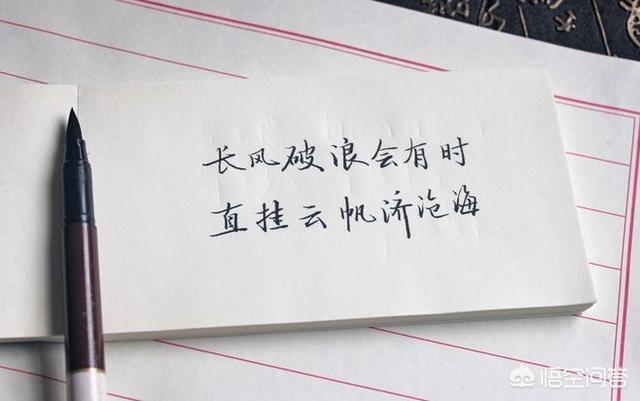 长风破浪会有时
直挂云帆济沧海
悟空问答